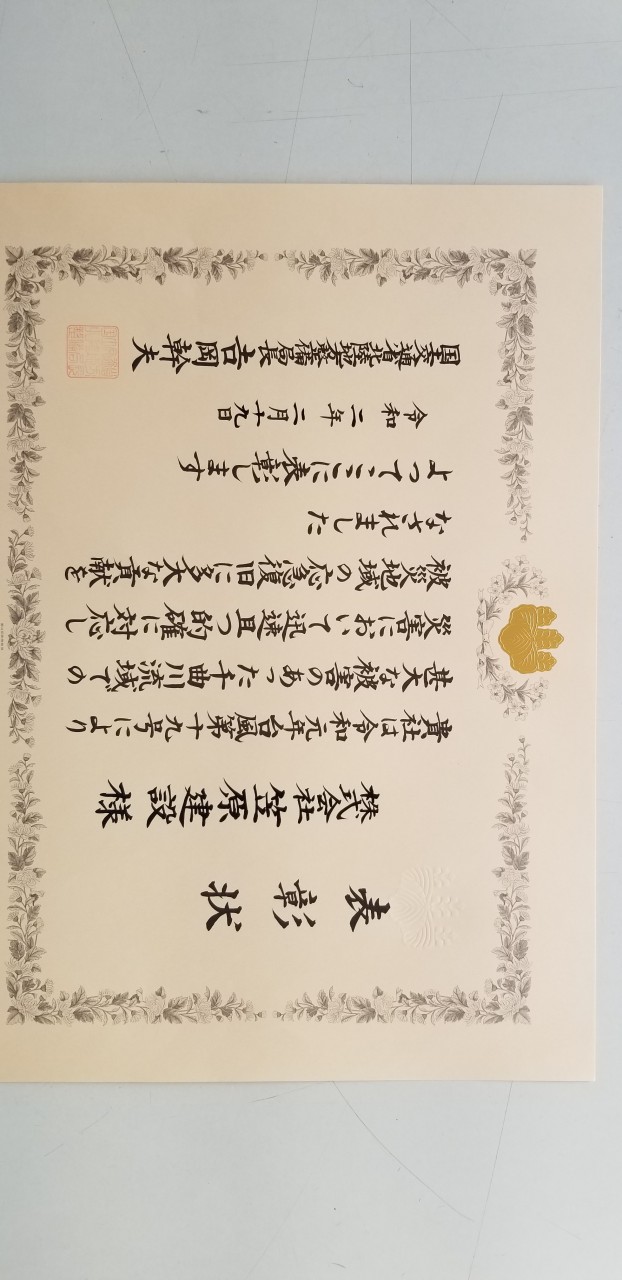 表彰状
株式会社笠原建設様
貴社は令和元年台風第十九号により
甚大な被害のあった千曲川流域での
災害において迅速且つ的確に対応し
被災地域の応急復旧に多大な貢献を
なされました
よってここに表彰します
令和二年二月十九日
国土交通省北陸地方整備局長吉岡幹夫